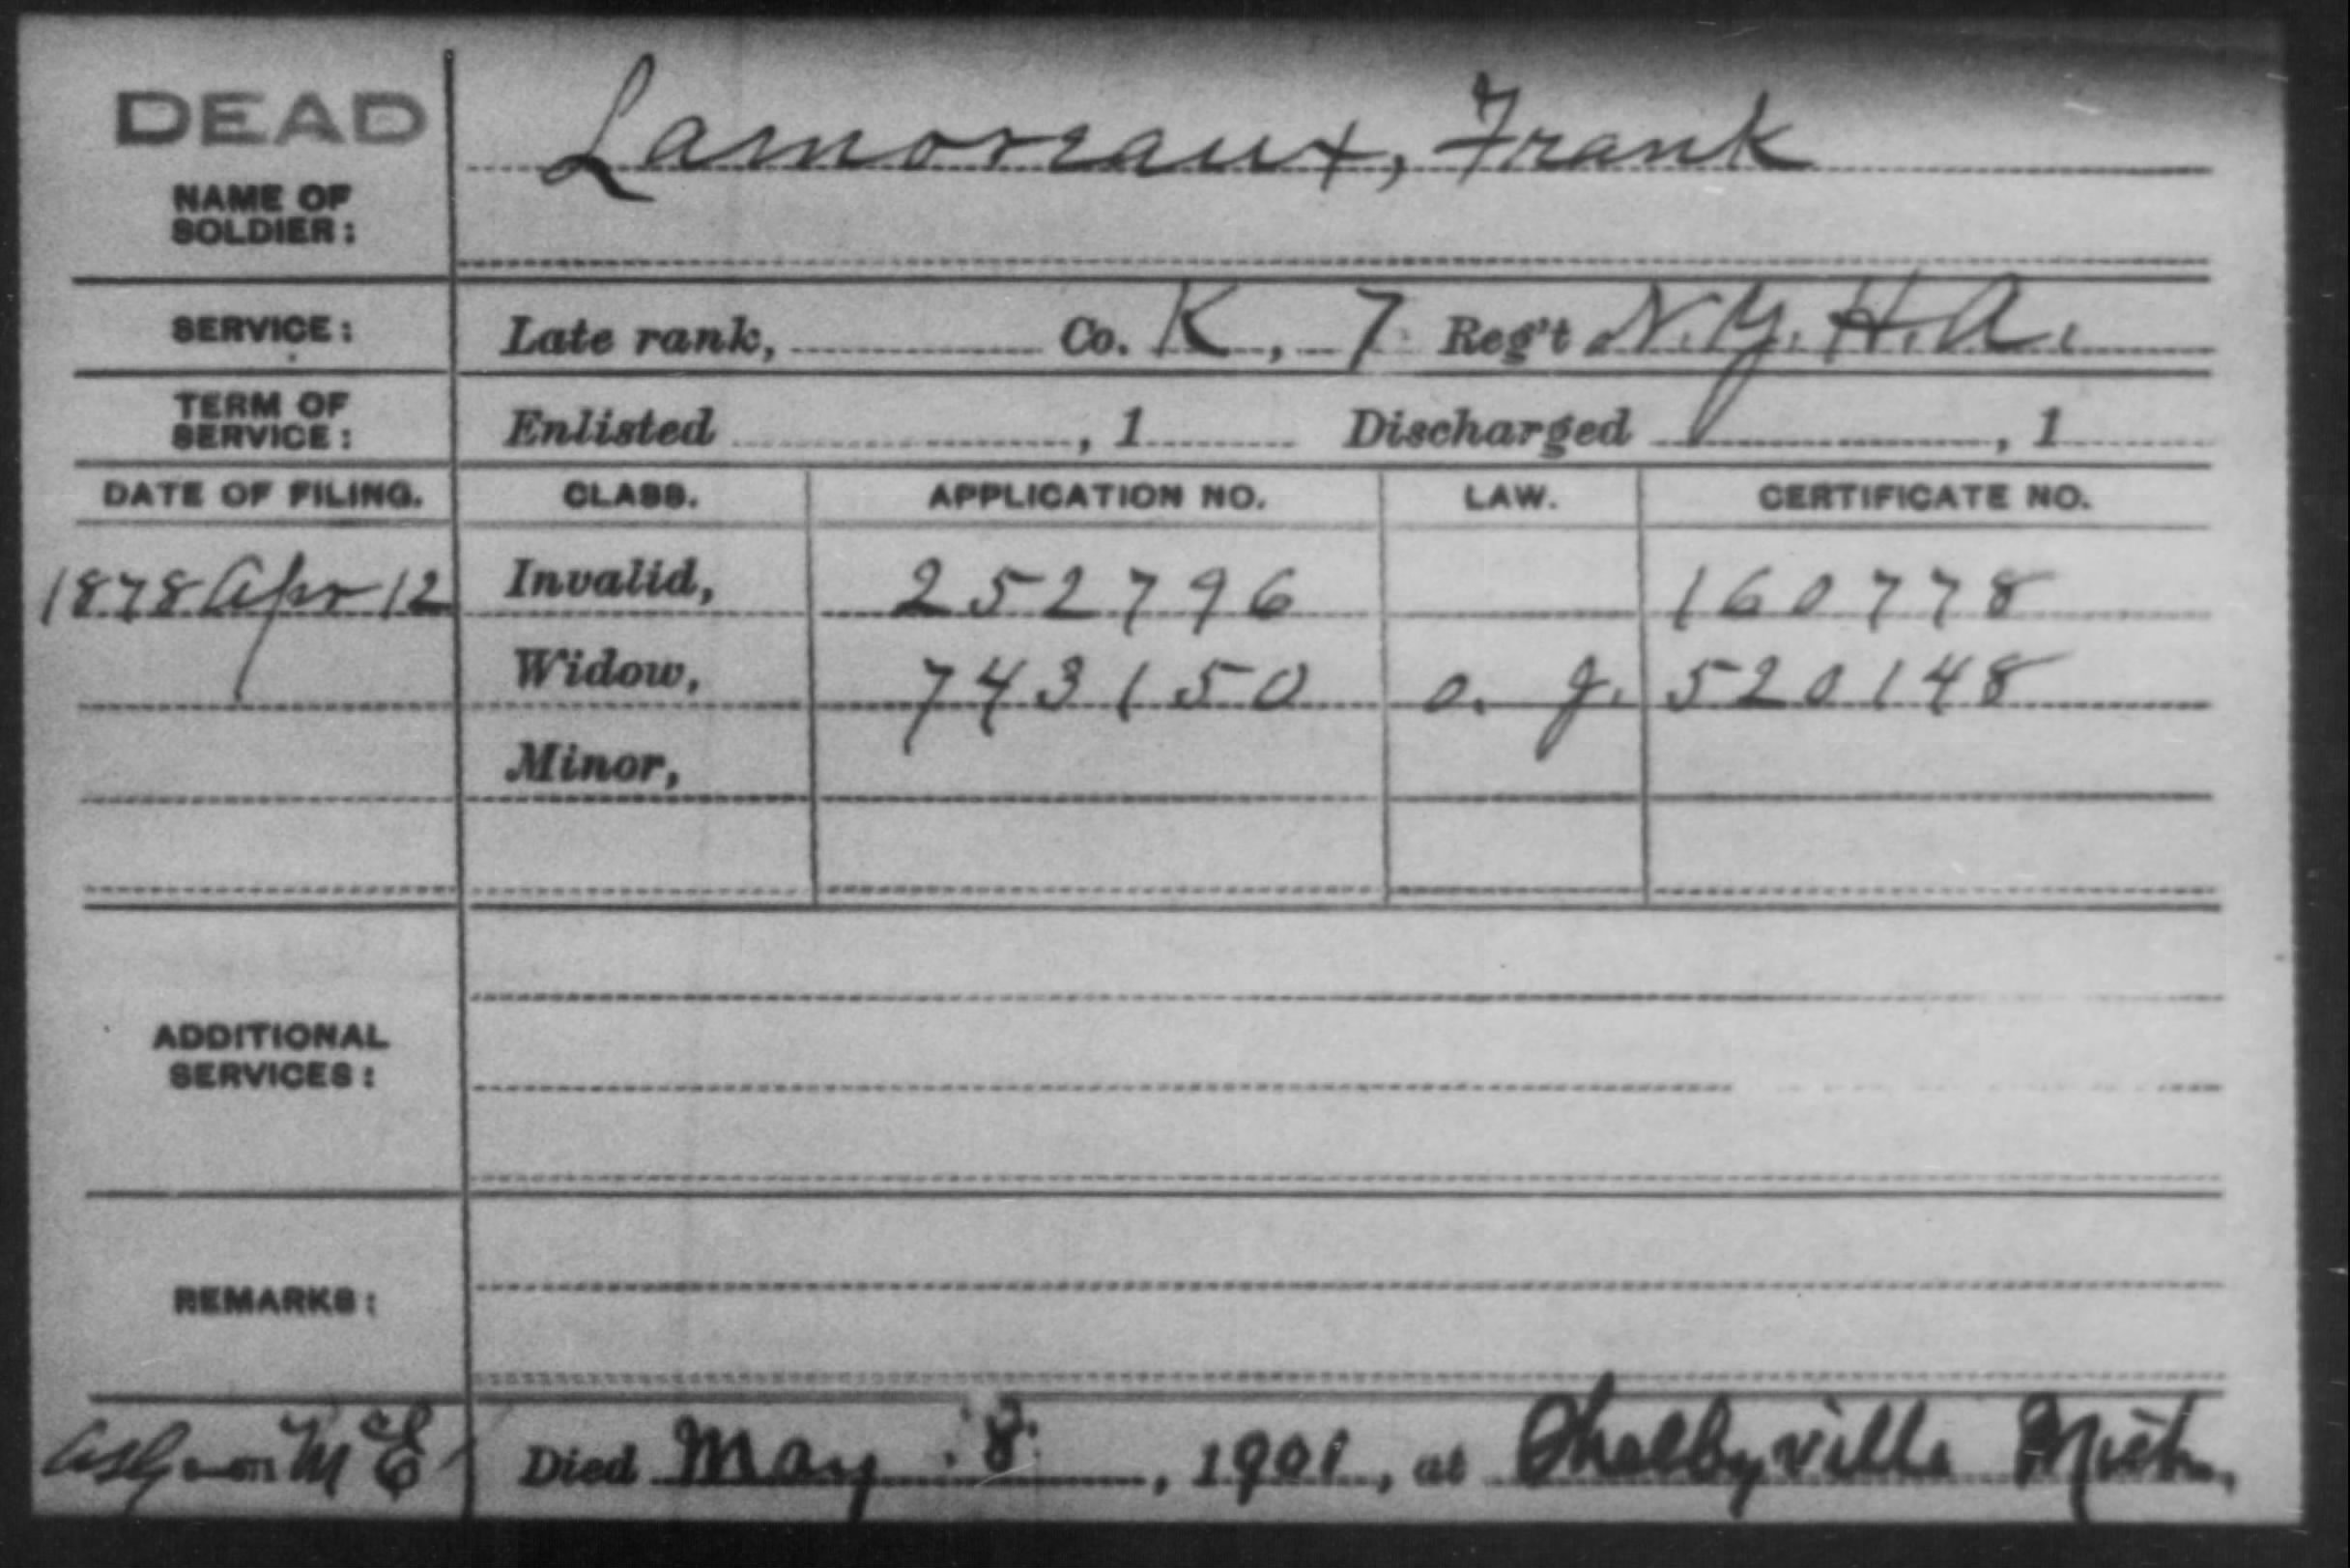 DEAD
Lamoreaux, Frank
NAME OF
SOLDIER:
SERVICE: Late rank, Co. K, 7 Reg't N.Y. H.A.
TERM OF
SERVICE: Enlisted , 1 Discharged , 1
DATE OF FILING. CLASS. APPLICATION NO. LAW. CERTIFICATE NO.
1878 Apr 12 Invalid, 252796 160778
Widow, 743150 o. g. 520148
Minor,
ADDITIONAL
SERVICES:
REMARKS:
Died May 8, 1901, at Shelbyville Mich.